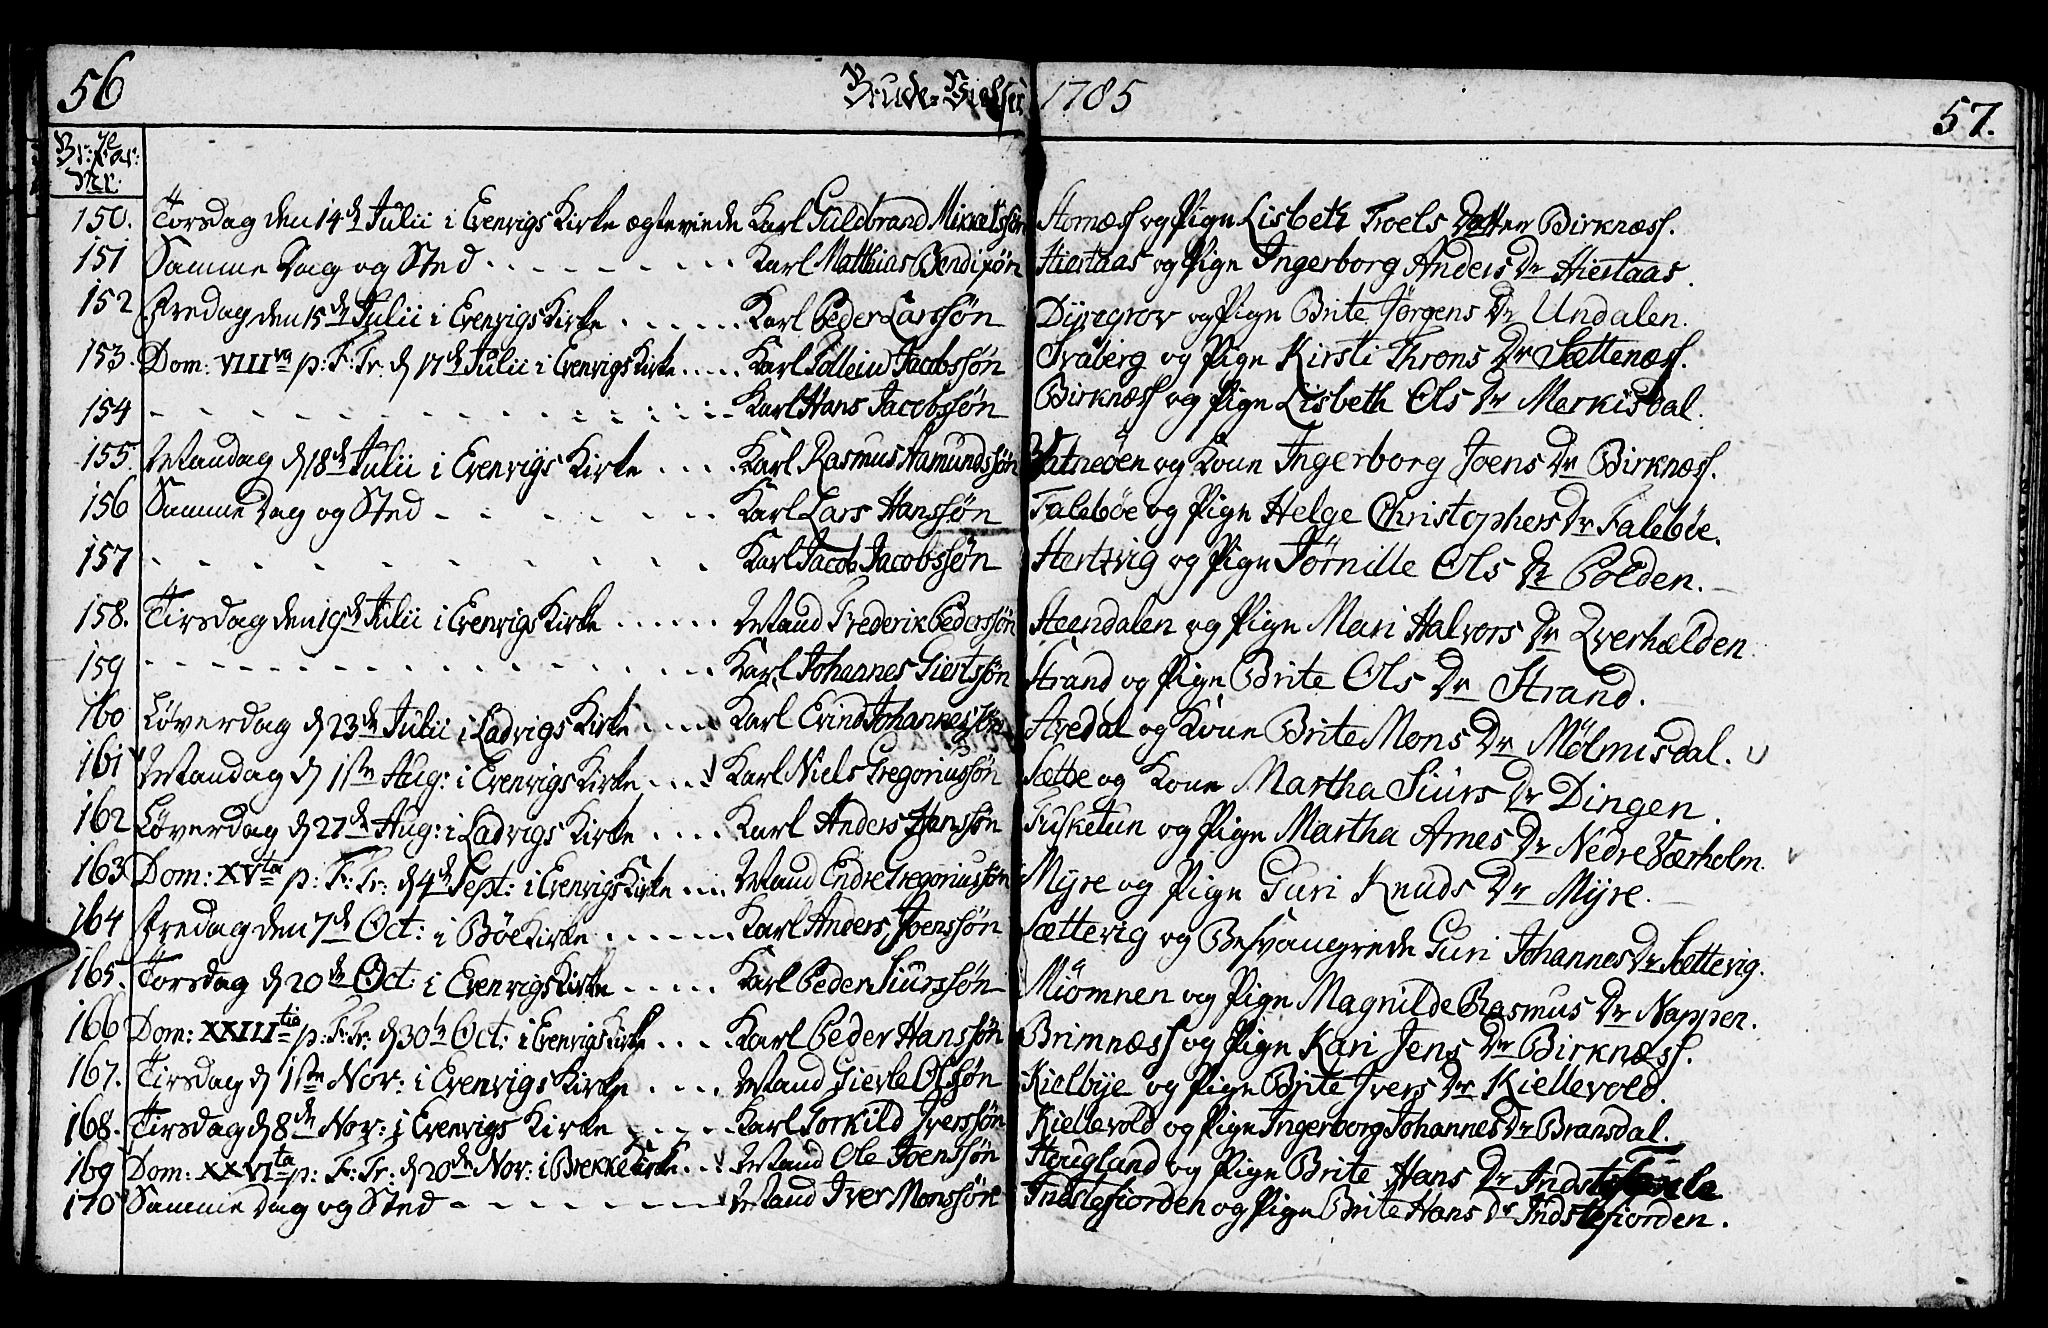 56 Brude-Vielser 1785 57.
Br: Par: Nr.
150. Torsdag den 14de Julii i Evenvigs Kirke ægteviede Karl Guldbrand Mikkelssøn Stornæss og Pige Lisbeth Troels Datter Birknæss.
151 Samme Dag og Sted - - - Karl Matthias Bendixøn Hiertaas og Pige Ingerborg Anders Dr Hiertaas.
152 Fredag den 15de Julii i Evenvigs Kirke . . . . . . Karl Peder Larssøn Dyregrov og Pige Brite Jørgens Dr Undalen.
153. Dom: VIIIva p: F: Tr. d 17de Julii i Evenvigs Kirke . . . . . Karl Jacobssøn Svaberg og Pige Kirsti Throns Dr Sættenæss.
154 - - - Karl Hans Jacobssøn Birknæss og Pige Lisbeth Ols Dr Merkisdal.
155. Mandag d 18de Julii i Evenvigs Kirke . . . . Karl Rasmus Hamundssøn Vatneøen og Kone Ingerborg Joens Dr Birknæss.
156 Samme Dag og Sted - - - Karl Lars Hanssøn Falebøe og Pige Helge Christophers Dr Falebøe.
157 - - - Karl Jacob Jacobssøn Hertvig og Pige Jørnille Ols Dr Polden.
158. Tirsdag den 19de Julii i Evenvigs Kirke . . . . . . Mand Frederik Pederssøn Steendalen og Pige Mari Halvors Dr Qverhælden
159 - - - Karl Johannes Giertssøn Strand og Pige Brite Ols Dr Strand.
160 Løverdag d 23de Julii i Ladvigs Kirke . . . . Karl Evind Johannessøn Aredal og Kone Brite Mons Dr Mølmisdal.
161 Mandag d 1ste Aug: i Evenvigs Kirke . . . Karl Niels Gregoriussøn Sætte og Kone Martha Siurs Dr Dingen.
162 Løverdag d 27de Aug: i Ladvigs Kirke . . . . Karl Anders Hanssøn Fusketun og Pige Martha Arnes Dr Nedre Værholm.
163 Dom: XVta p: F: Tr: d 4de Sept: i Evenvigs Kirke . . . . Mand Endre Gregoriussøn Myre og Pige Guri Knuds Dr Myre.
164 Fredag den 7de Oct: i Bøe Kirke . . . . . . Karl Anders Joenssøn Sættevig og Besvangrede Guri Johannes Dr Sættevig.
165. Torsdag d 20de Oct: i Evenvigs Kirke . . . . . Karl Peder Siurssøn Miømnen og Pige Magnilde Rasmus Dr Nappen.
166 Dom: XXIIItia p: F: Tr: d 30te Oct: i Evenvigs Kirke . . . . Karl Peder Hanssøn Brimnæss og Pige Kari Jens Dr Birknæss.
167. Tirsdag d 1ste Nov: i Evenvigs Kirke . . . . Mand Gierle Olssøn Kielbye og Pige Brite Ivers Dr Kiellevold.
168. Tirsdag d 8de Nov: i Evenvigs Kirke . . . . . Karl Torkild Iverssøn Kiellevold og Pige Ingerborg Johannes Dr Bransdal.
169 Dom: XXVIta p: F: Tr: d 20de Nov: i Brekke Kirke . . Mand Ole Joenssøn Hougland og Pige Brite Hans Dr
170 Samme Dag og Sted - - - Mand Iver Monssøn Indstefiorden og Pige Brite Hans Dr Indstefiorden.